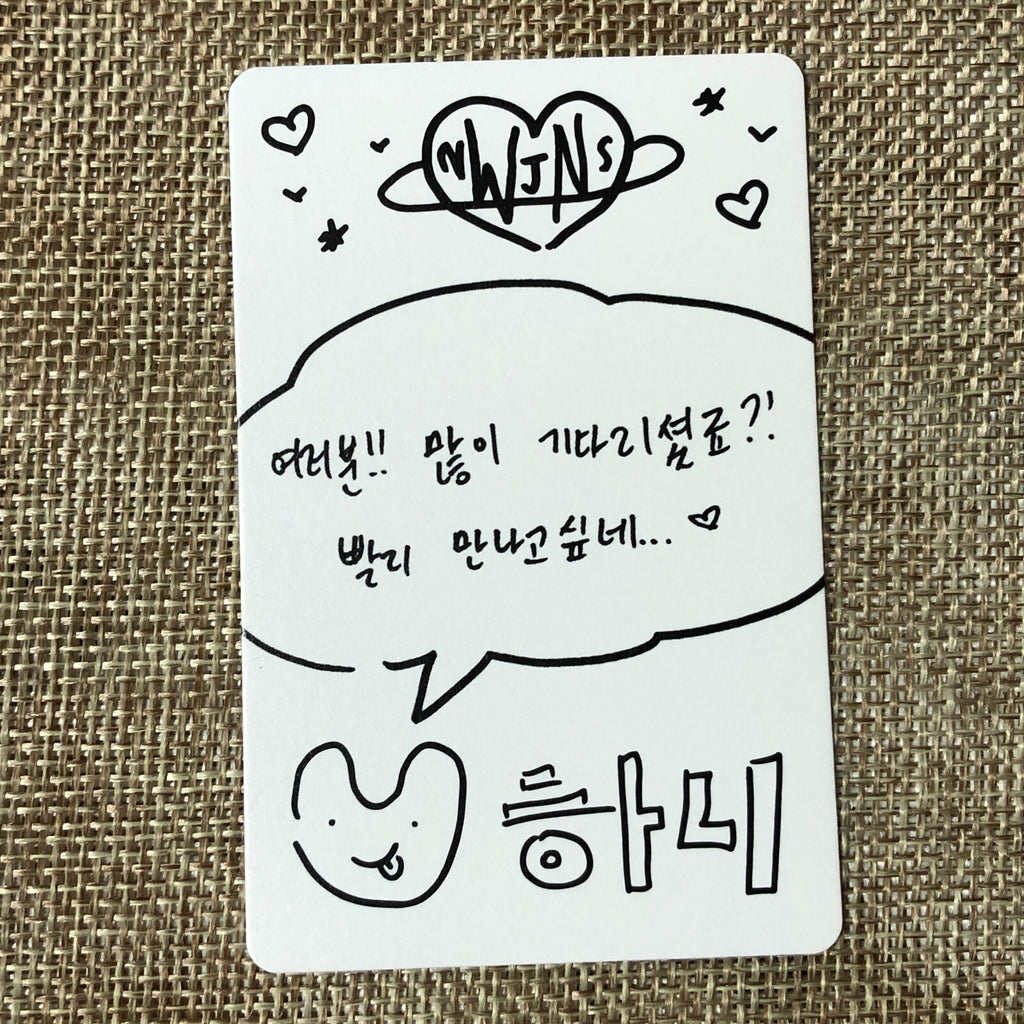 NWJNS
여러분!! 많이 기다리셨죠?!
빨리 만나고싶네...
하니